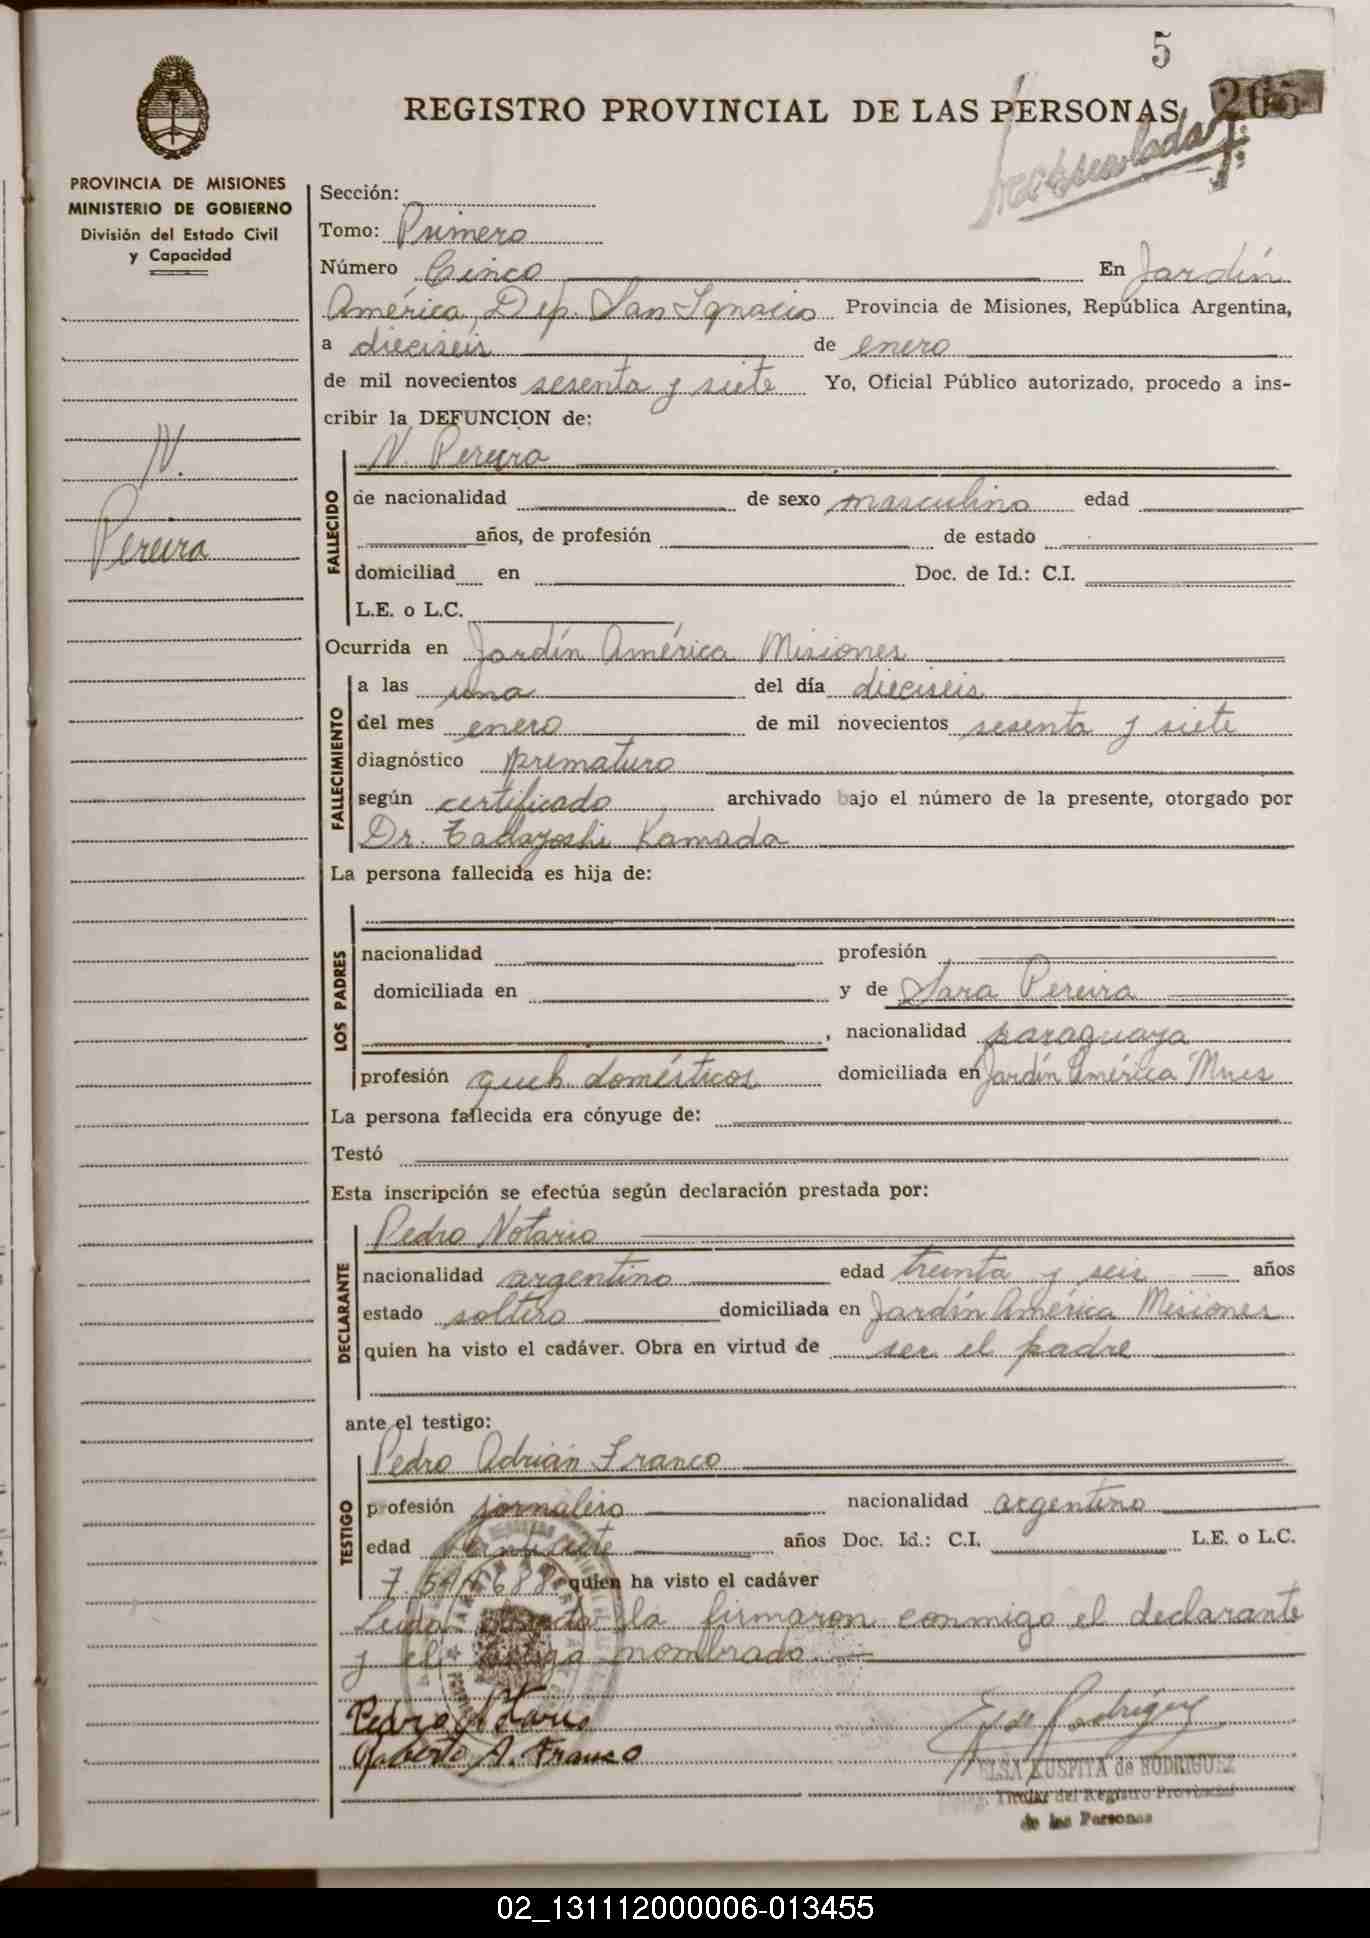 5
265
REGISTRO PROVINCIAL DE LAS PERSONAS
PROVINCIA DE MISIONES
MINISTERIO DE GOBIERNO
División del Estado Civil
y Capacidad
N.
Pereira
Sección:
Tomo: Primero
Número Cinco En Jardín
América, Dep. San Ignacio Provincia de Misiones, República Argentina,
a dieciseis de enero
de mil novecientos sesenta y siete Yo, Oficial Público autorizado, procedo a ins-
cribir la DEFUNCION de:
FALLECIDO
N. Pereira
de nacionalidad de sexo masculino edad
años, de profesión de estado
domiciliad en Doc. de Id.: C.I.
L.E. o L.C.
Ocurrida en Jardín América Misiones
FALLECIMIENTO
a las una del día dieciseis
del mes enero de mil novecientos sesenta y siete
diagnóstico prematuro
según certificado archivado bajo el número de la presente, otorgado por
Dr. Tadayoshi Kamada
La persona fallecida es hija de:
LOS PADRES
nacionalidad profesión
domiciliada en y de Sara Pereira
, nacionalidad paraguaya
profesión queh. domésticos domiciliada en Jardín América Mnes
La persona fallecida era cónyuge de:
Testó
Esta inscripción se efectúa según declaración prestada por:
DECLARANTE
Pedro Notario
nacionalidad argentino edad treinta y seis años
estado soltero domiciliada en Jardín América Misiones
quien ha visto el cadáver. Obra en virtud de ser el padre
ante el testigo:
TESTIGO
Pedro Adrián Franco
profesión jornalero nacionalidad argentino
edad años Doc. Id.: C.I. L.E. o L.C.
quien ha visto el cadáver
Leída la firmaron conmigo el declarante
y el nombrado
Pedro Notario
A. Franco
Rodríguez
ELSA KUSPITA de RODRIGUEZ
Titular del Registro Provincial
de las Personas
02_131112000006-013455